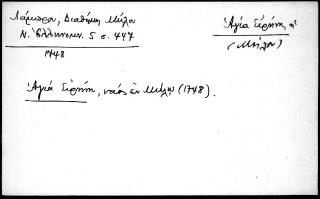 Λάμπρου, Διαθήκη Μήλου
Ν. Ἑλληνομν. 5 σ. 447
1748
Ἁγία Εἰρήνη, ἡ
(Μήλου)
Ἁγιά Εἰρήνη, ναός ἐν Μήλῳ (1748).